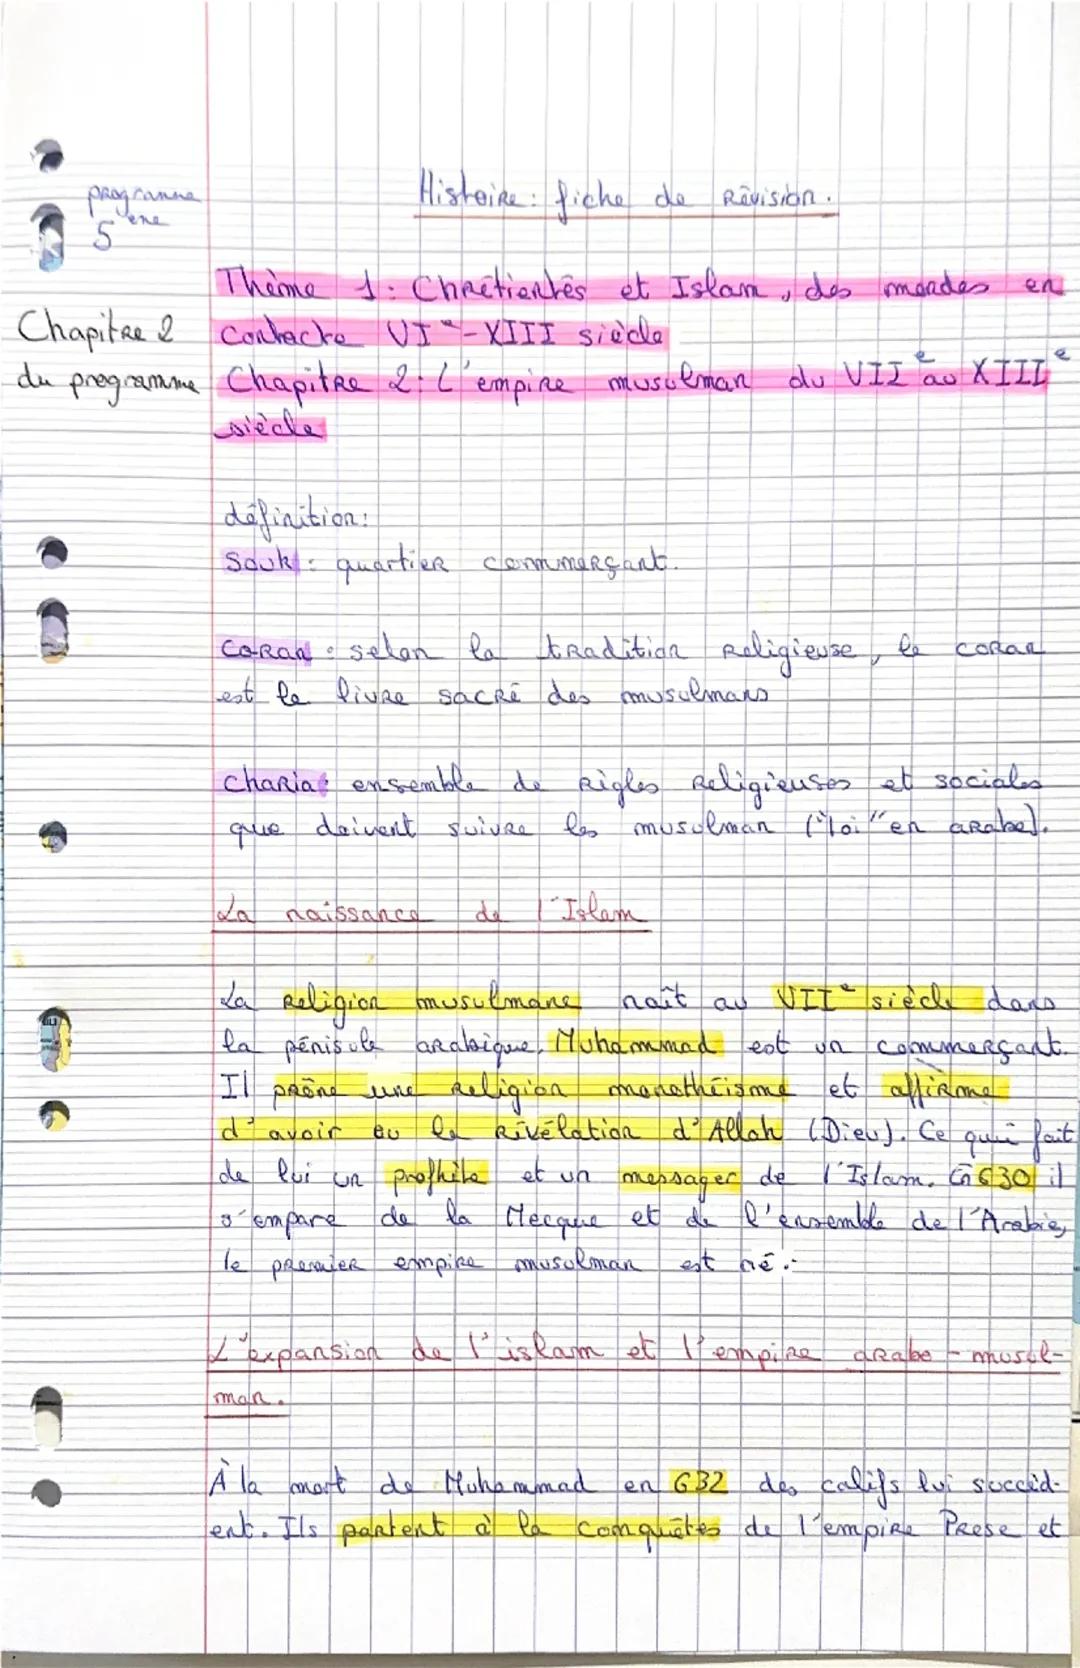 Histoire : fiche de Révision.
programme
5ème
Thème 1 : Chrétientés et Islam, des mondes en
Chapitre 2
contacte VIe - XIII siècle
du programme
Chapitre 2 : L'empire musulman du VIIe au XIIIe
siècle
définition :
Souk : quartier commerçant.
Coran : selon la tradition religieuse, le coran
est le livre sacré des musulmans
Charia : ensemble de règles religieuses et sociales
que doivent suivre les musulman ("loi" en arabe).
La naissance de l'Islam
La religion musulmane naît au VIIe siècle dans
la pénisule arabique. Muhammad est un commerçant.
Il prône une religion monothéisme et affirme
d'avoir eu la révélation d'Allah (Dieu). Ce qui fait
de lui un prophète et un messager de l'Islam. En 630 il
s'empare de la Mecque et de l'ensemble de l'Arabie,
le premier empire musulman est né.
L'expansion de l'islam et l'empire arabo-musul-
man.
À la mort de Muhammad en 632 des califs lui succéd-
ent. Ils partent à la conquêtes de l'empire Prese et